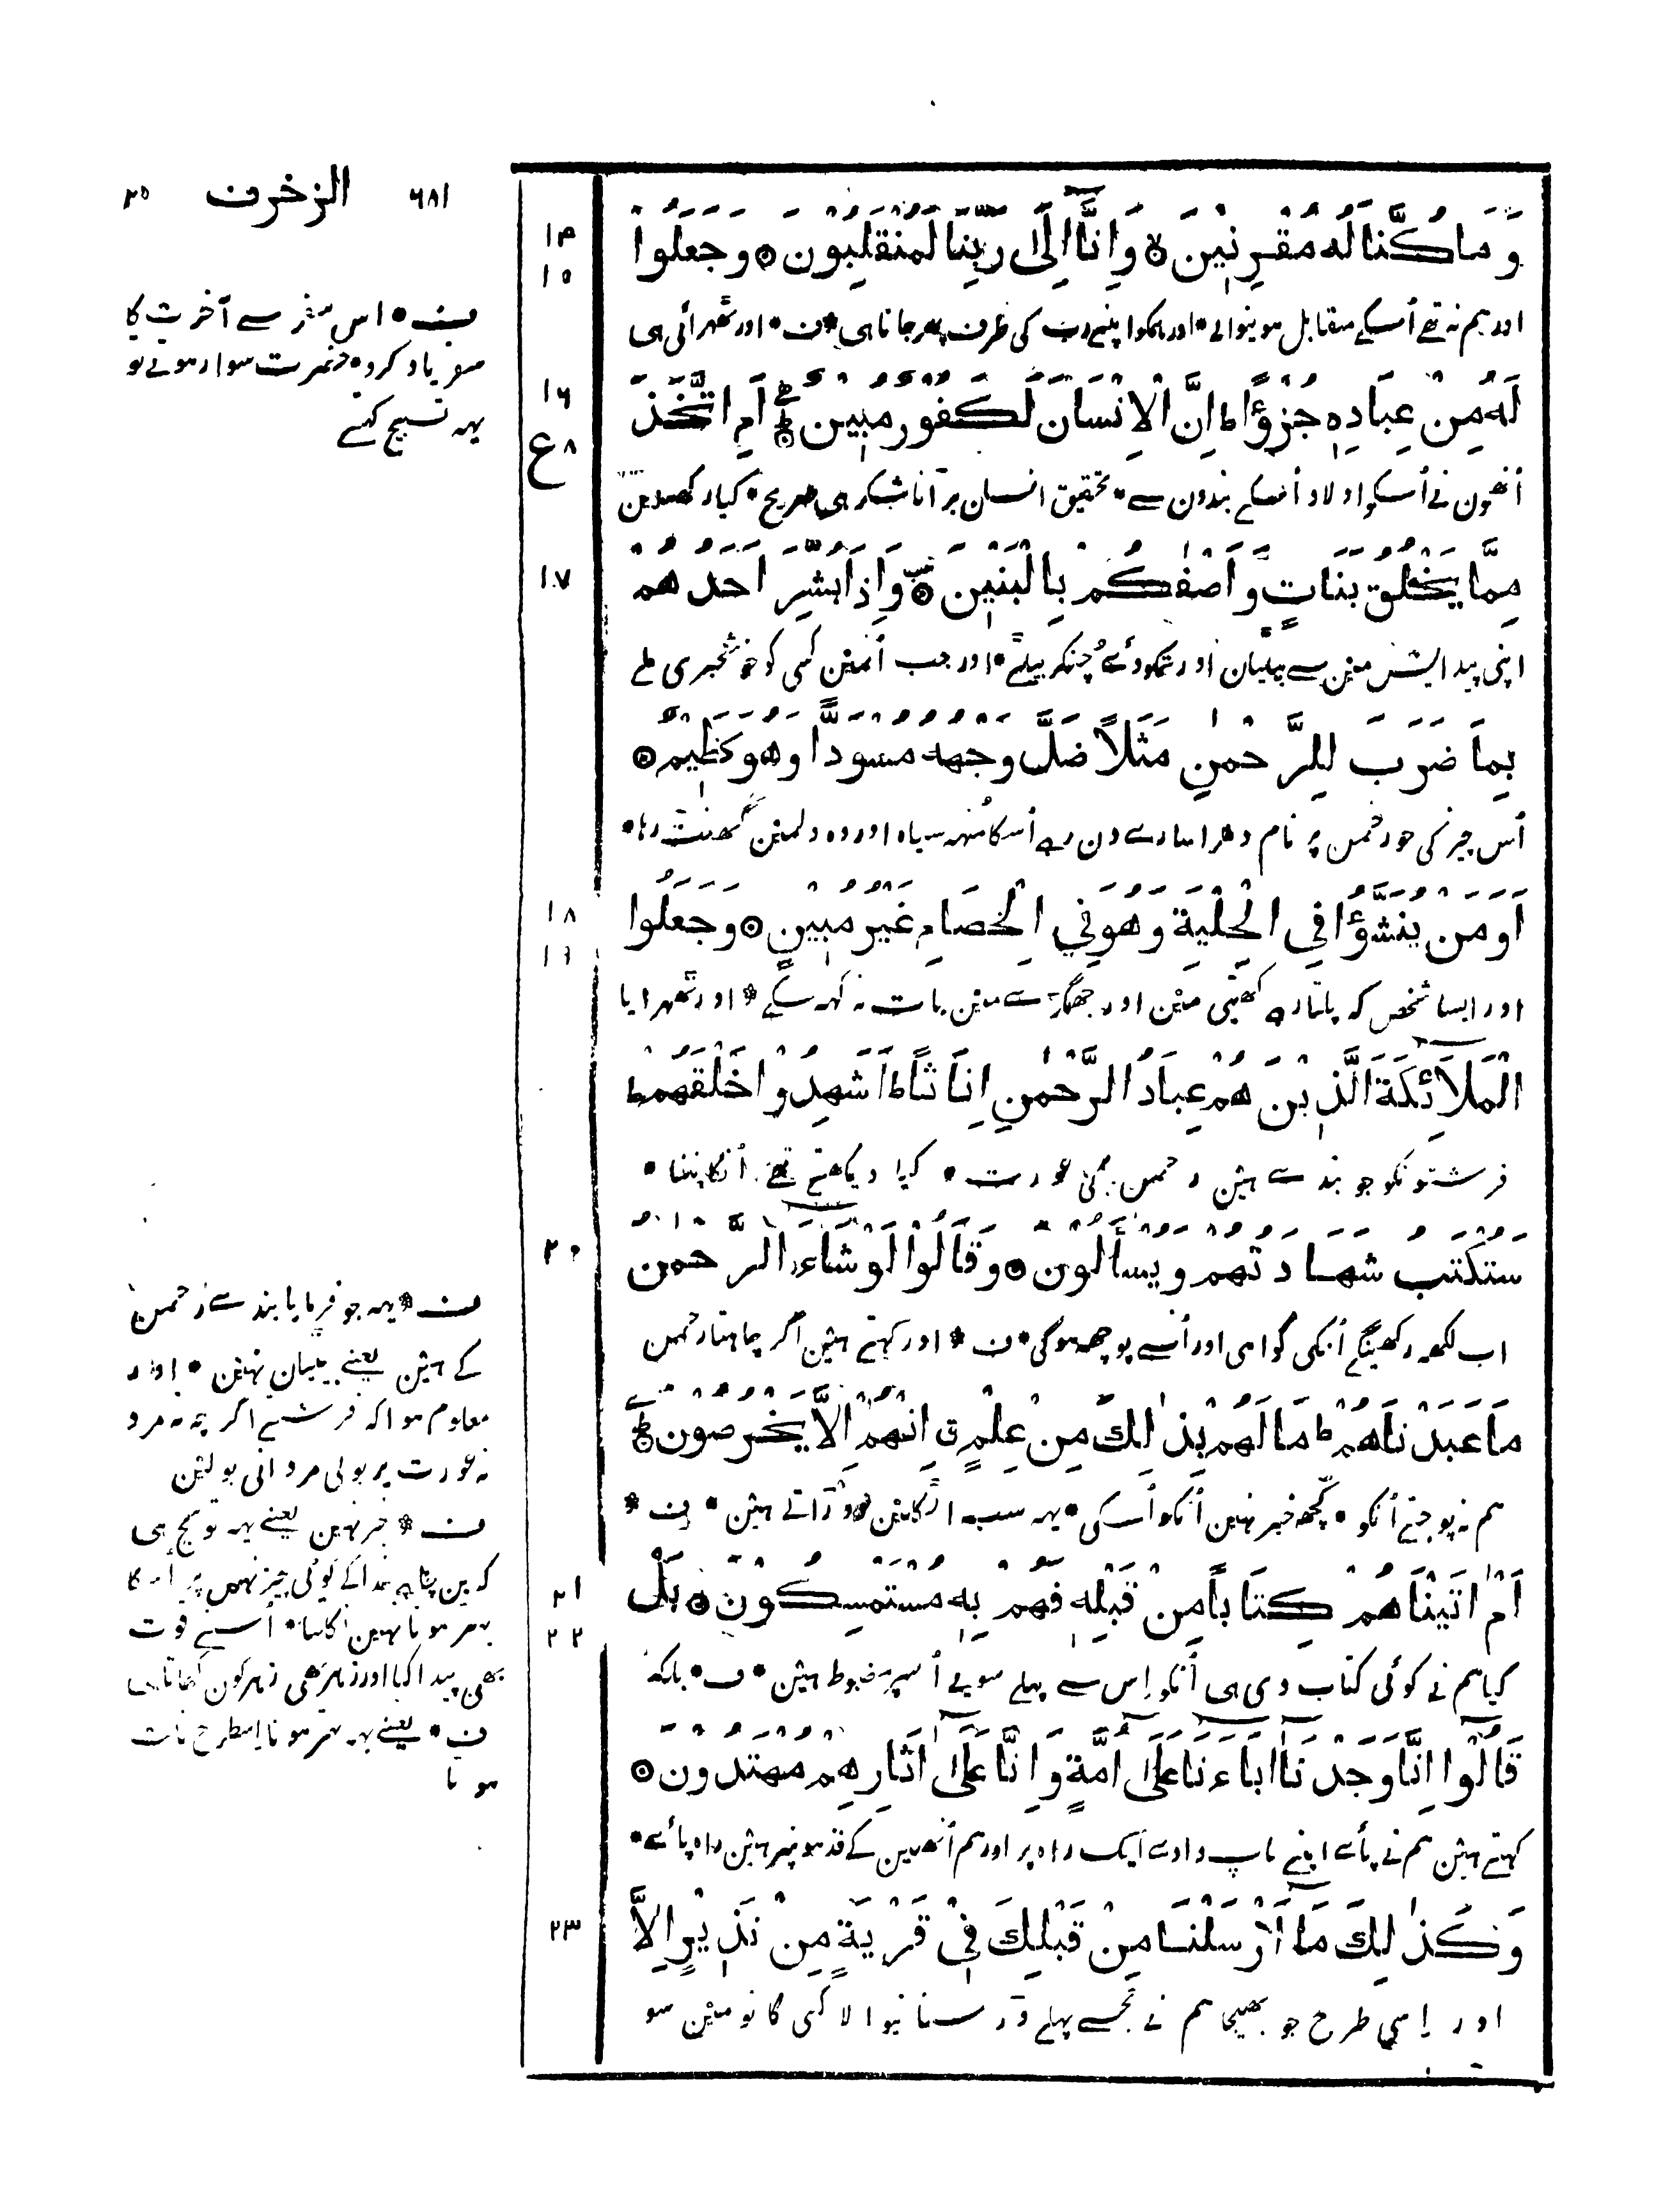 ۶۸۱ الزخرف ۲۵
وَمَا كُنَّا لَهُ مُقْرِنِيْنَ ۙ وَاِنَّا اِلٰى رَبِّنَا لَمُنْقَلِبُوْنَ ۞ وَجَعَلُوْا
۱۴
۱۵
اور ہم نہ تھے اُسکے مقابل ہونیوالے * اور ہمکو اپنے رب کی طرف پھر جانا ہی * ف * اور ٹھہرائی ہی
لَهُ مِنْ عِبَادِهٖ جُزْءًا ط اِنَّ الْاِنْسَانَ لَكَفُوْرٌ مُبِيْنٌ ۞ اَمِ اتَّخَذَ
۱۶
۸ ع
اُنھون نے اُسکو اولاد اُسکے بندون سے * تحقیق انسان بڑا ناشکر ہی صریح * کیا رکھہ لین
مِمَّا يَخْلُقُ بَنَاتٍ وَّاَصْفٰىكُمْ بِالْبَنِيْنَ ۞ وَاِذَا بُشِّرَ اَحَدُهُمْ
۱۷
اپنی پیدایش مین سے بیٹیان اور تمکو دئے چنکر بیٹے * اور جب اُنمین کسی کو خوشخبری ملے
بِمَا ضَرَبَ لِلرَّحْمٰنِ مَثَلًا ضَلَّ وَجْهُهُ مُسْوَدًّا وَهُوَ كَظِيْمٌ ۞
اُس چیز کی جو رحمن پر نام دھرا سارے دن رہے اُسکا مُنہہ سیاہ اور وہ دلمین گھٹ رہا *
اَوَمَنْ يُنَشَّؤُا فِي الْحِلْيَةِ وَهُوَ فِي الْخِصَامِ غَيْرُ مُبِيْنٍ ۞ وَجَعَلُوا
۱۸
۱۹
اور ایسا شخص کہ پلتا رہے گہنے مین اور جھگڑے مین بات نہ کہہ سکے * اور ٹھہرایا
الْمَلَآئِكَةَ الَّذِيْنَ هُمْ عِبَادُ الرَّحْمٰنِ اِنَاثًا ط اَشَهِدُوْا خَلْقَهُمْ ط
فرشتونکو جو بندے ہین رحمن کی عورت * کیا دیکھتے تھے اُنکا بننا *
سَتُكْتَبُ شَهَادَتُهُمْ وَيُسْاَلُوْنَ ۞ وَقَالُوْا لَوْ شَآءَ الرَّحْمٰنُ
۲۰
اب لکھہ رکھینگے اُنکی گواہی اور اُنسے پوچھہ ہوگی * ف * اور کہتے ہین اگر چاہتا رحمن
مَا عَبَدْنَاهُمْ ط مَا لَهُمْ بِذٰلِكَ مِنْ عِلْمٍ ق اِنْ هُمْ اِلَّا يَخْرُصُوْنَ ۞
ہم نہ پوجتے اُنکو * کچھہ خبر نہین اُنکو اُسکی * یہہ سب اٹکلین دوڑاتے ہین * ف *
اَمْ اٰتَيْنَاهُمْ كِتَابًا مِنْ قَبْلِهٖ فَهُمْ بِهٖ مُسْتَمْسِكُوْنَ ۞ بَلْ
۲۱
۲۲
کیا ہم نے کوئی کتاب دی ہی اُنکو اِس سے پہلے سو یے اُسپر مضبوط ہین * ف * بلکہ
قَالُوْا اِنَّا وَجَدْنَا اٰبَآءَنَا عَلٰى اُمَّةٍ وَاِنَّا عَلٰى اٰثَارِهِمْ مُهْتَدُوْنَ ۞
کہتے ہین ہم نے پائے اپنے باپ دادے ایک راہ پر اور ہم اُنھین کے قدمونپر ہین راہ پائے *
وَكَذٰلِكَ مَا اَرْسَلْنَا مِنْ قَبْلِكَ فِيْ قَرْيَةٍ مِنْ نَذِيْرٍ اِلَّا
۲۳
اور اِسی طرح جو بھیجا ہم نے تجسے پہلے ڈر سنانیوالا کسی گانو مین سو
ف * اس سفر سے آخرت کا
سفر یاد کرو * حضرت سوار ہوتے تو
یہہ تسبیح کہتے
ف * یہہ جو فرمایا بندے رحمن
کے ہین یعنے بیٹیان نہین * اور
معلوم ہوا کہ فرشتے اگرچہ نہ مرد
نہ عورت پر بولی مردانی بولین
ف * خبر نہین یعنے یہہ تو سچ ہی
کہ بن چاہے خدا کے کوئی چیز نہین پر اُسکا
بہتر ہونا نہین نکلتا * اُسنے قوت
بھی پیدا کیا اور زہر بھی زہر کون کھاتا ہی
ف * یعنے یہہ بہتر ہونا اِسطرح ثابت
ہوتا